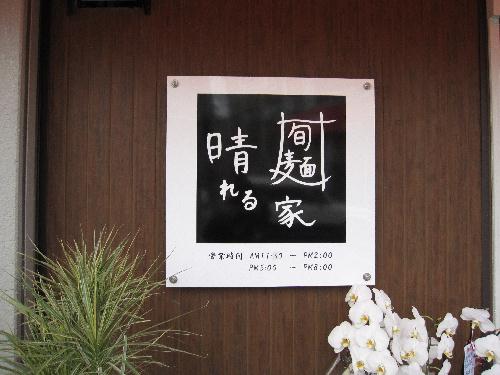 旬麺家
晴れる
営業時間 AM11:30 − PM2:00
PM5:00 − PM8:00